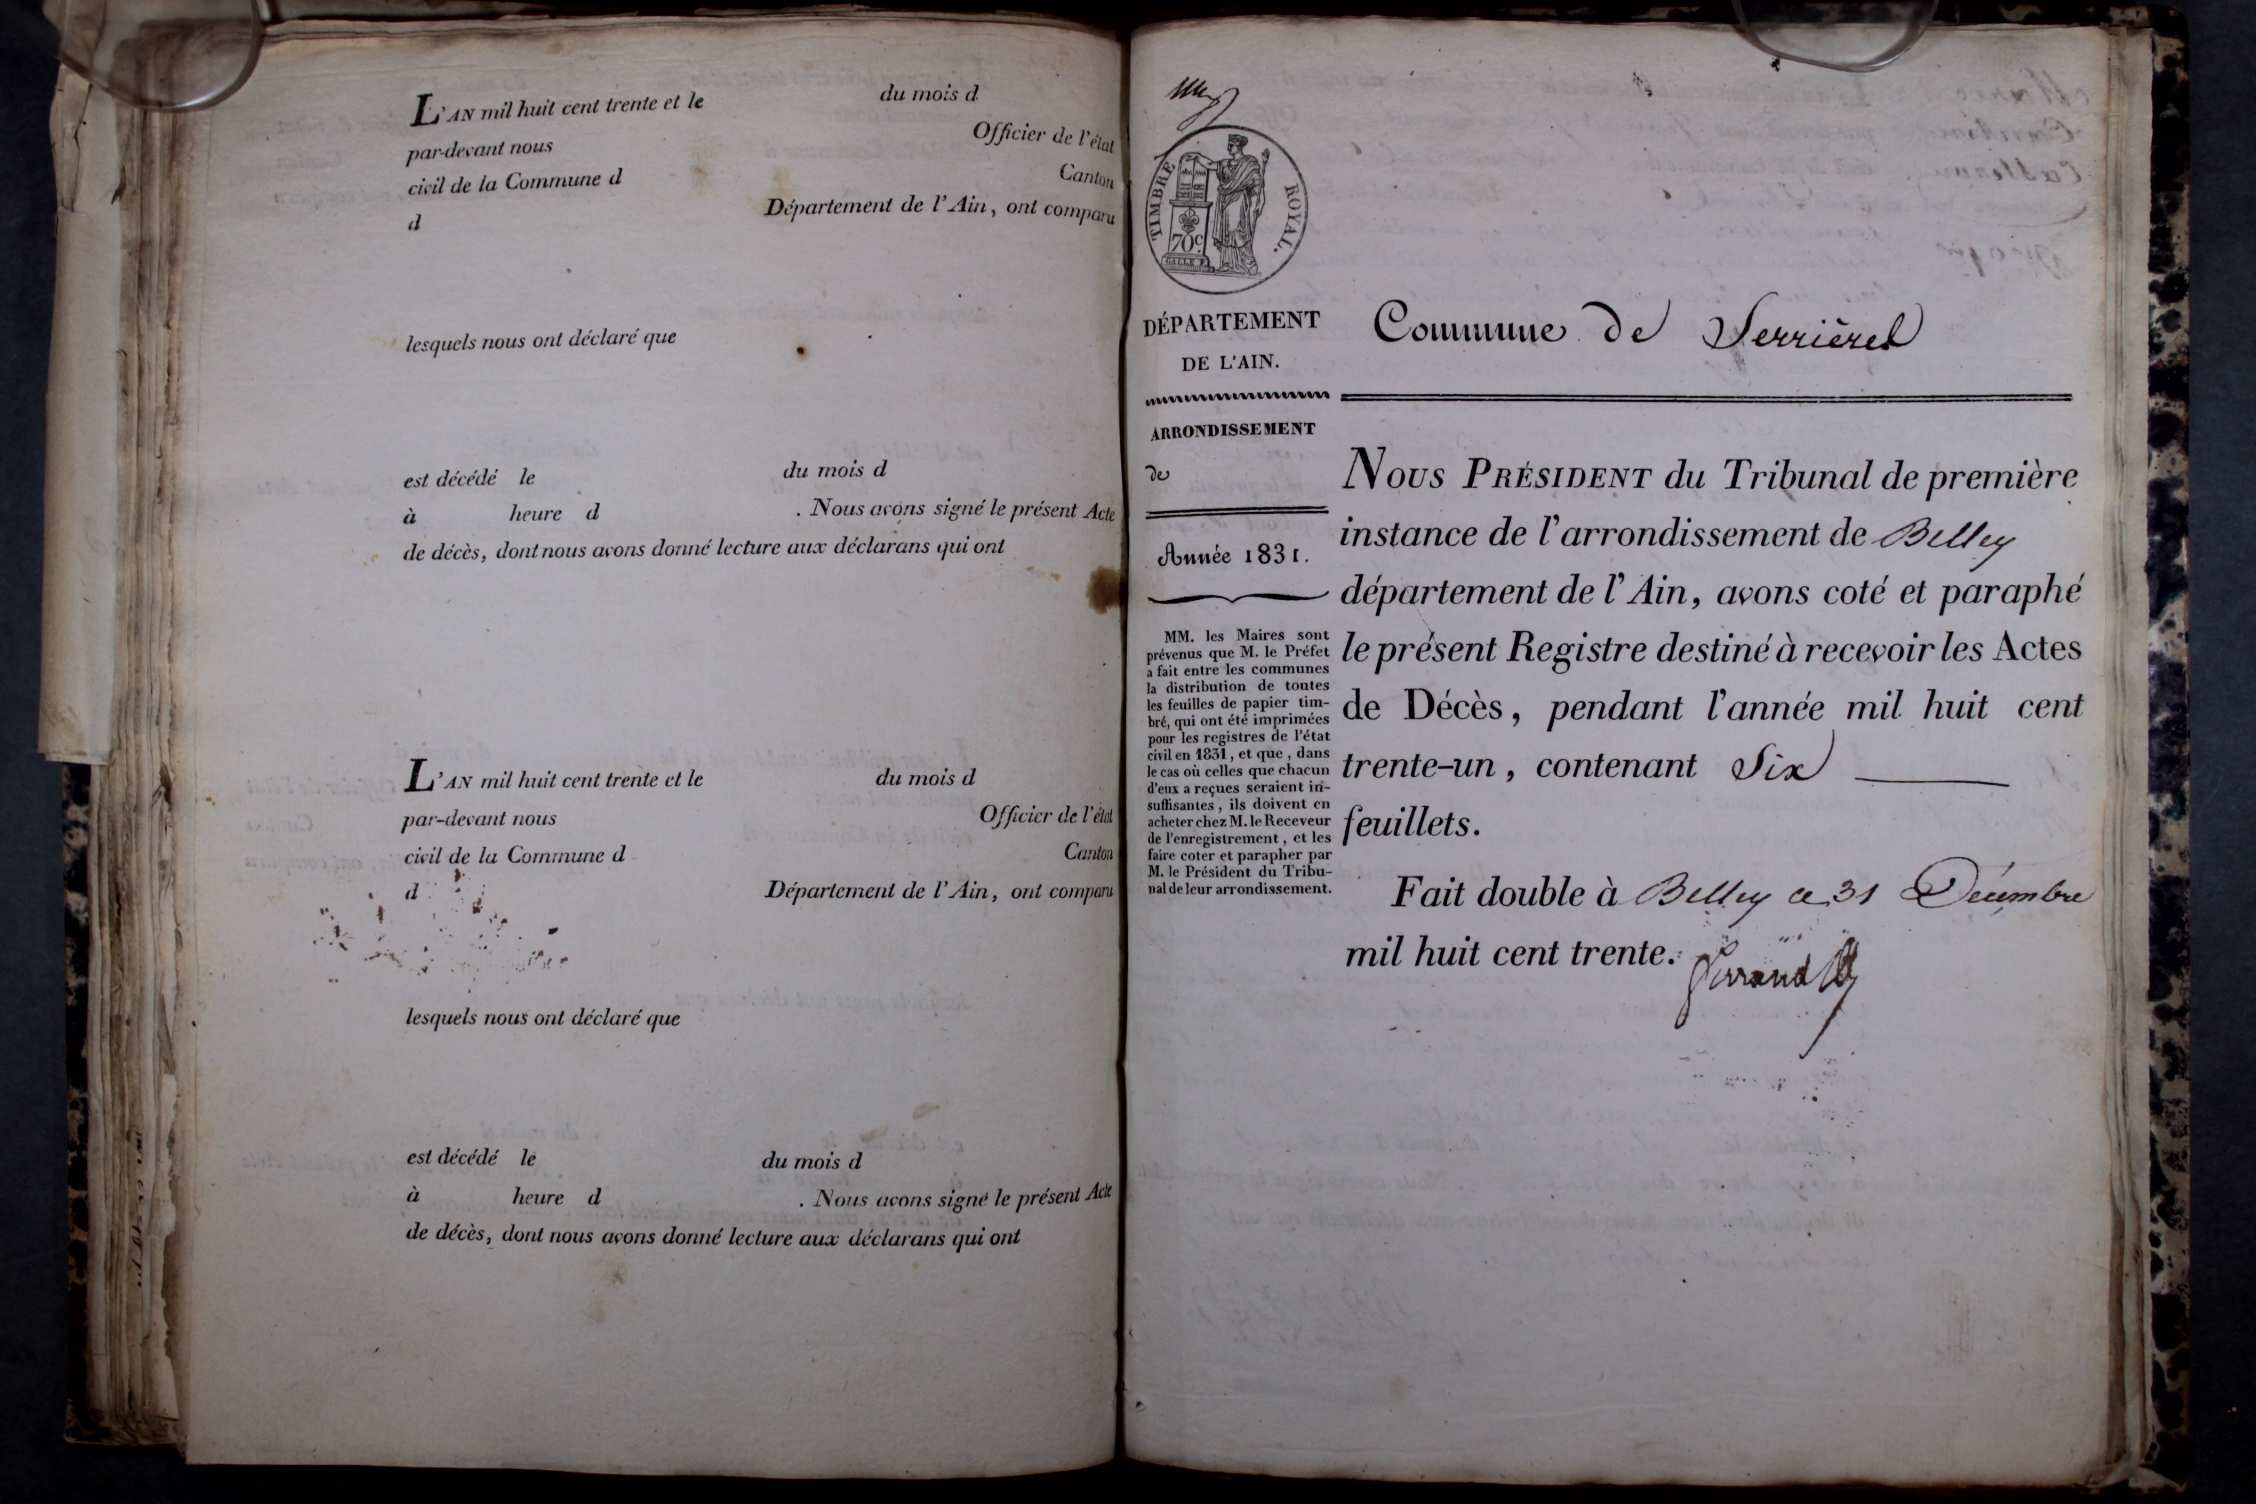 L'AN mil huit cent trente et le du mois d
par-devant nous Officier de l'état
civil de la Commune d Canton
d Département de l'Ain, ont comparu
lesquels nous ont déclaré que
est décédé le du mois d
à heure d . Nous avons signé le présent Acte
de décès, dont nous avons donné lecture aux déclarans qui ont
L'AN mil huit cent trente et le du mois d
par-devant nous Officier de l'état
civil de la Commune d Canton
d Département de l'Ain, ont comparu
lesquels nous ont déclaré que
est décédé le du mois d
à heure d . Nous avons signé le présent Acte
de décès, dont nous avons donné lecture aux déclarans qui ont
TIMBRE ROYAL.
70c
DÉPARTEMENT
DE L'AIN.
ARRONDISSEMENT
de
Année 1831.
MM. les Maires sont
prévenus que M. le Préfet
a fait entre les communes
la distribution de toutes
les feuilles de papier tim-
bré, qui ont été imprimées
pour les registres de l'état
civil en 1831, et que, dans
le cas où celles que chacun
d'eux a reçues seraient in-
suffisantes, ils doivent en
acheter chez M. le Receveur
de l'enregistrement, et les
faire coter et parapher par
M. le Président du Tribu-
nal de leur arrondissement.
Commune de Serrières
NOUS PRÉSIDENT du Tribunal de première
instance de l'arrondissement de Belley
département de l'Ain, avons coté et paraphé
le présent Registre destiné à recevoir les Actes
de Décès, pendant l'année mil huit cent
trente-un, contenant Six
feuillets.
Fait double à Belley ce 31 Décembre
mil huit cent trente.